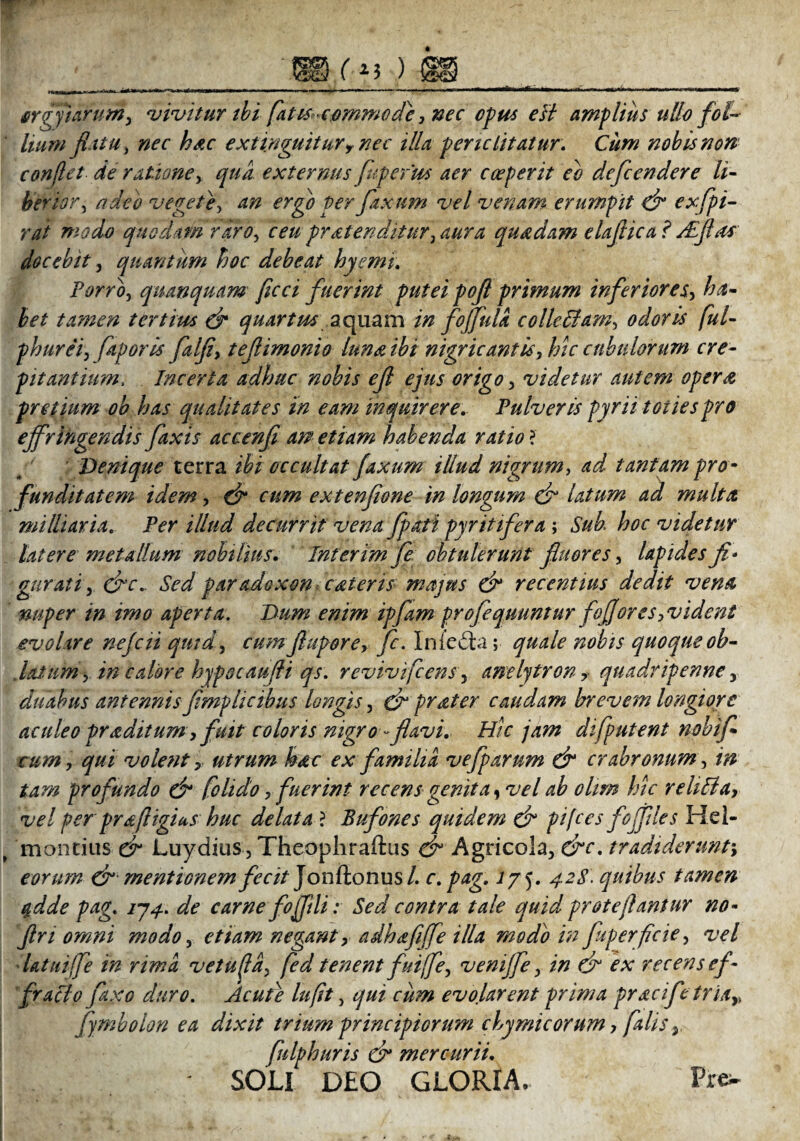 ( 23 )
argyiarum, vivitur ibi satis commode, nec opus est amplius ullo fol-
lium flatu, nec hæc extinguitur, nec illa periclitatur. Cùm nobis non
constet de ratione, quâ externus superus aer cœperit eò descendere li-
berior, adeò vegetè, an ergò per saxum vel venam erumpit & exspi-
rat modo quodam rarò, ceu prætenditur, aura quædam elastica? Æstas
docebit, quantùm hoc debeat hyemi.
Porrò, quanquam sicci fuerint putei post primum inferiores, ha-
bet tamen tertius & quartus aquam in fossulâ collectam, odoris sul-
phurëi, saporis salsi, testimonio lunæ ibi nigricantis, hîc cubulorum cre-
pitantium. Incerta adhuc nobis est ejus origo, videtur autem operæ
pretium ob has qualitates in eam inquirere. Pulveris pyrii toties pro
effringendis saxis accensi an etiam habenda ratio?
Denique terra ibi occultat saxum illud nigrum, ad tantam pro-
funditatem idem, & cum extensione in longum & latum ad multa
milliaria. Per illud decurrit vena spati pyritifera; Sub hoc videtur
latere metallum nobilius. Interim se obtulerunt fluores, lapides fi-
gurati, &c. Sed paradoxon cæteris majus & recentius dedit vena
nuper in imo aperta. Dum enim ipsam prosequuntur fossores, vident
evolare nescii quid, cum stupore, sc. Insecta; quale nobis quoque ob-
latum, in calore hypocausti qs. revivifcens, anelytron, quadripenne,
duabus antennis simplicibus longis, & præter caudam brevem longiore
aculeo præditum, fuit coloris nigro-flavi. Hîc jam disputent nobis-
cum, qui volent, utrum hæc ex familiâ vesparum & crabronum, in
tam profundo & solido, fuerint recens genita, vel ab olim hîc relicta,
vel per præstigias huc delata? Bufones quidem & pisces fossiles Hel-
montius & Luydius, Theophrastus & Agricola, &c. tradiderunt;
eorum & mentionem fecit Jonstonus l. c. pag. 175. 428. quibus tamen
adde pag. 174. de carne fossili: Sed contra tale quid protestantur no-
stri omni modo, etiam negant, adhæsisse illa modò in superficie, vel
latuisse in rimâ vetustâ, sed tenent fuisse, venisse, in & ex recens ef-
fracto saxo duro. Acutè lusit, qui cùm evolarent prima præcisè tria,
symbolon ea dixit trium principiorum chymicorum, salis,
sulphuris & mercurii.
SOLI DEO GLORIA.
Pre-